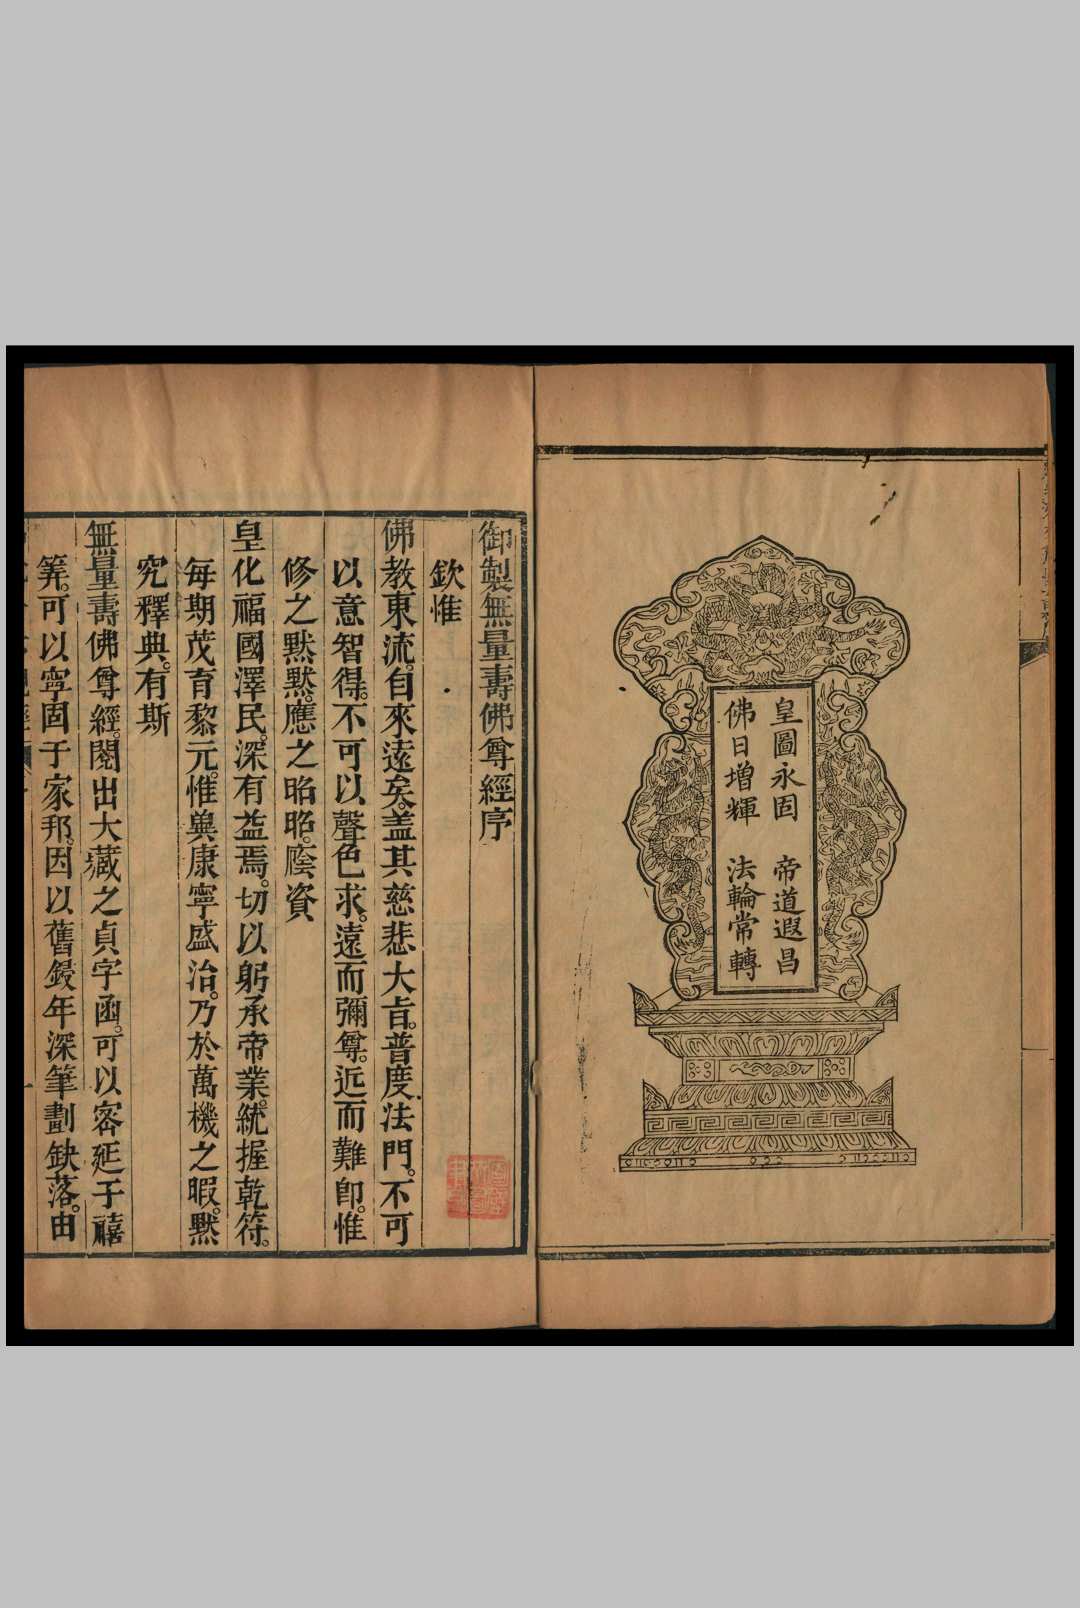 皇圖永固　帝道遐昌
佛日增輝　法輪常轉
御製無量壽佛尊經序
欽惟
佛教東流。自來遠矣。盖其慈悲大旨。普度法門。不可
以意智得。不可以聲色求。遠而彌尊。近而難卽。惟
修之黙黙。應之昭昭。廕資
皇化福國澤民。深有益焉。切以躬承帝業。統握乾符。
每期茂育黎元。惟兾康寧盛治。乃於萬機之暇。黙
究釋典。有斯
無量壽佛尊經。閱出大藏之貞字函。可以宻延于禧
筭。可以寧固于家邦。因以舊鋟年深筆劃缺落。由